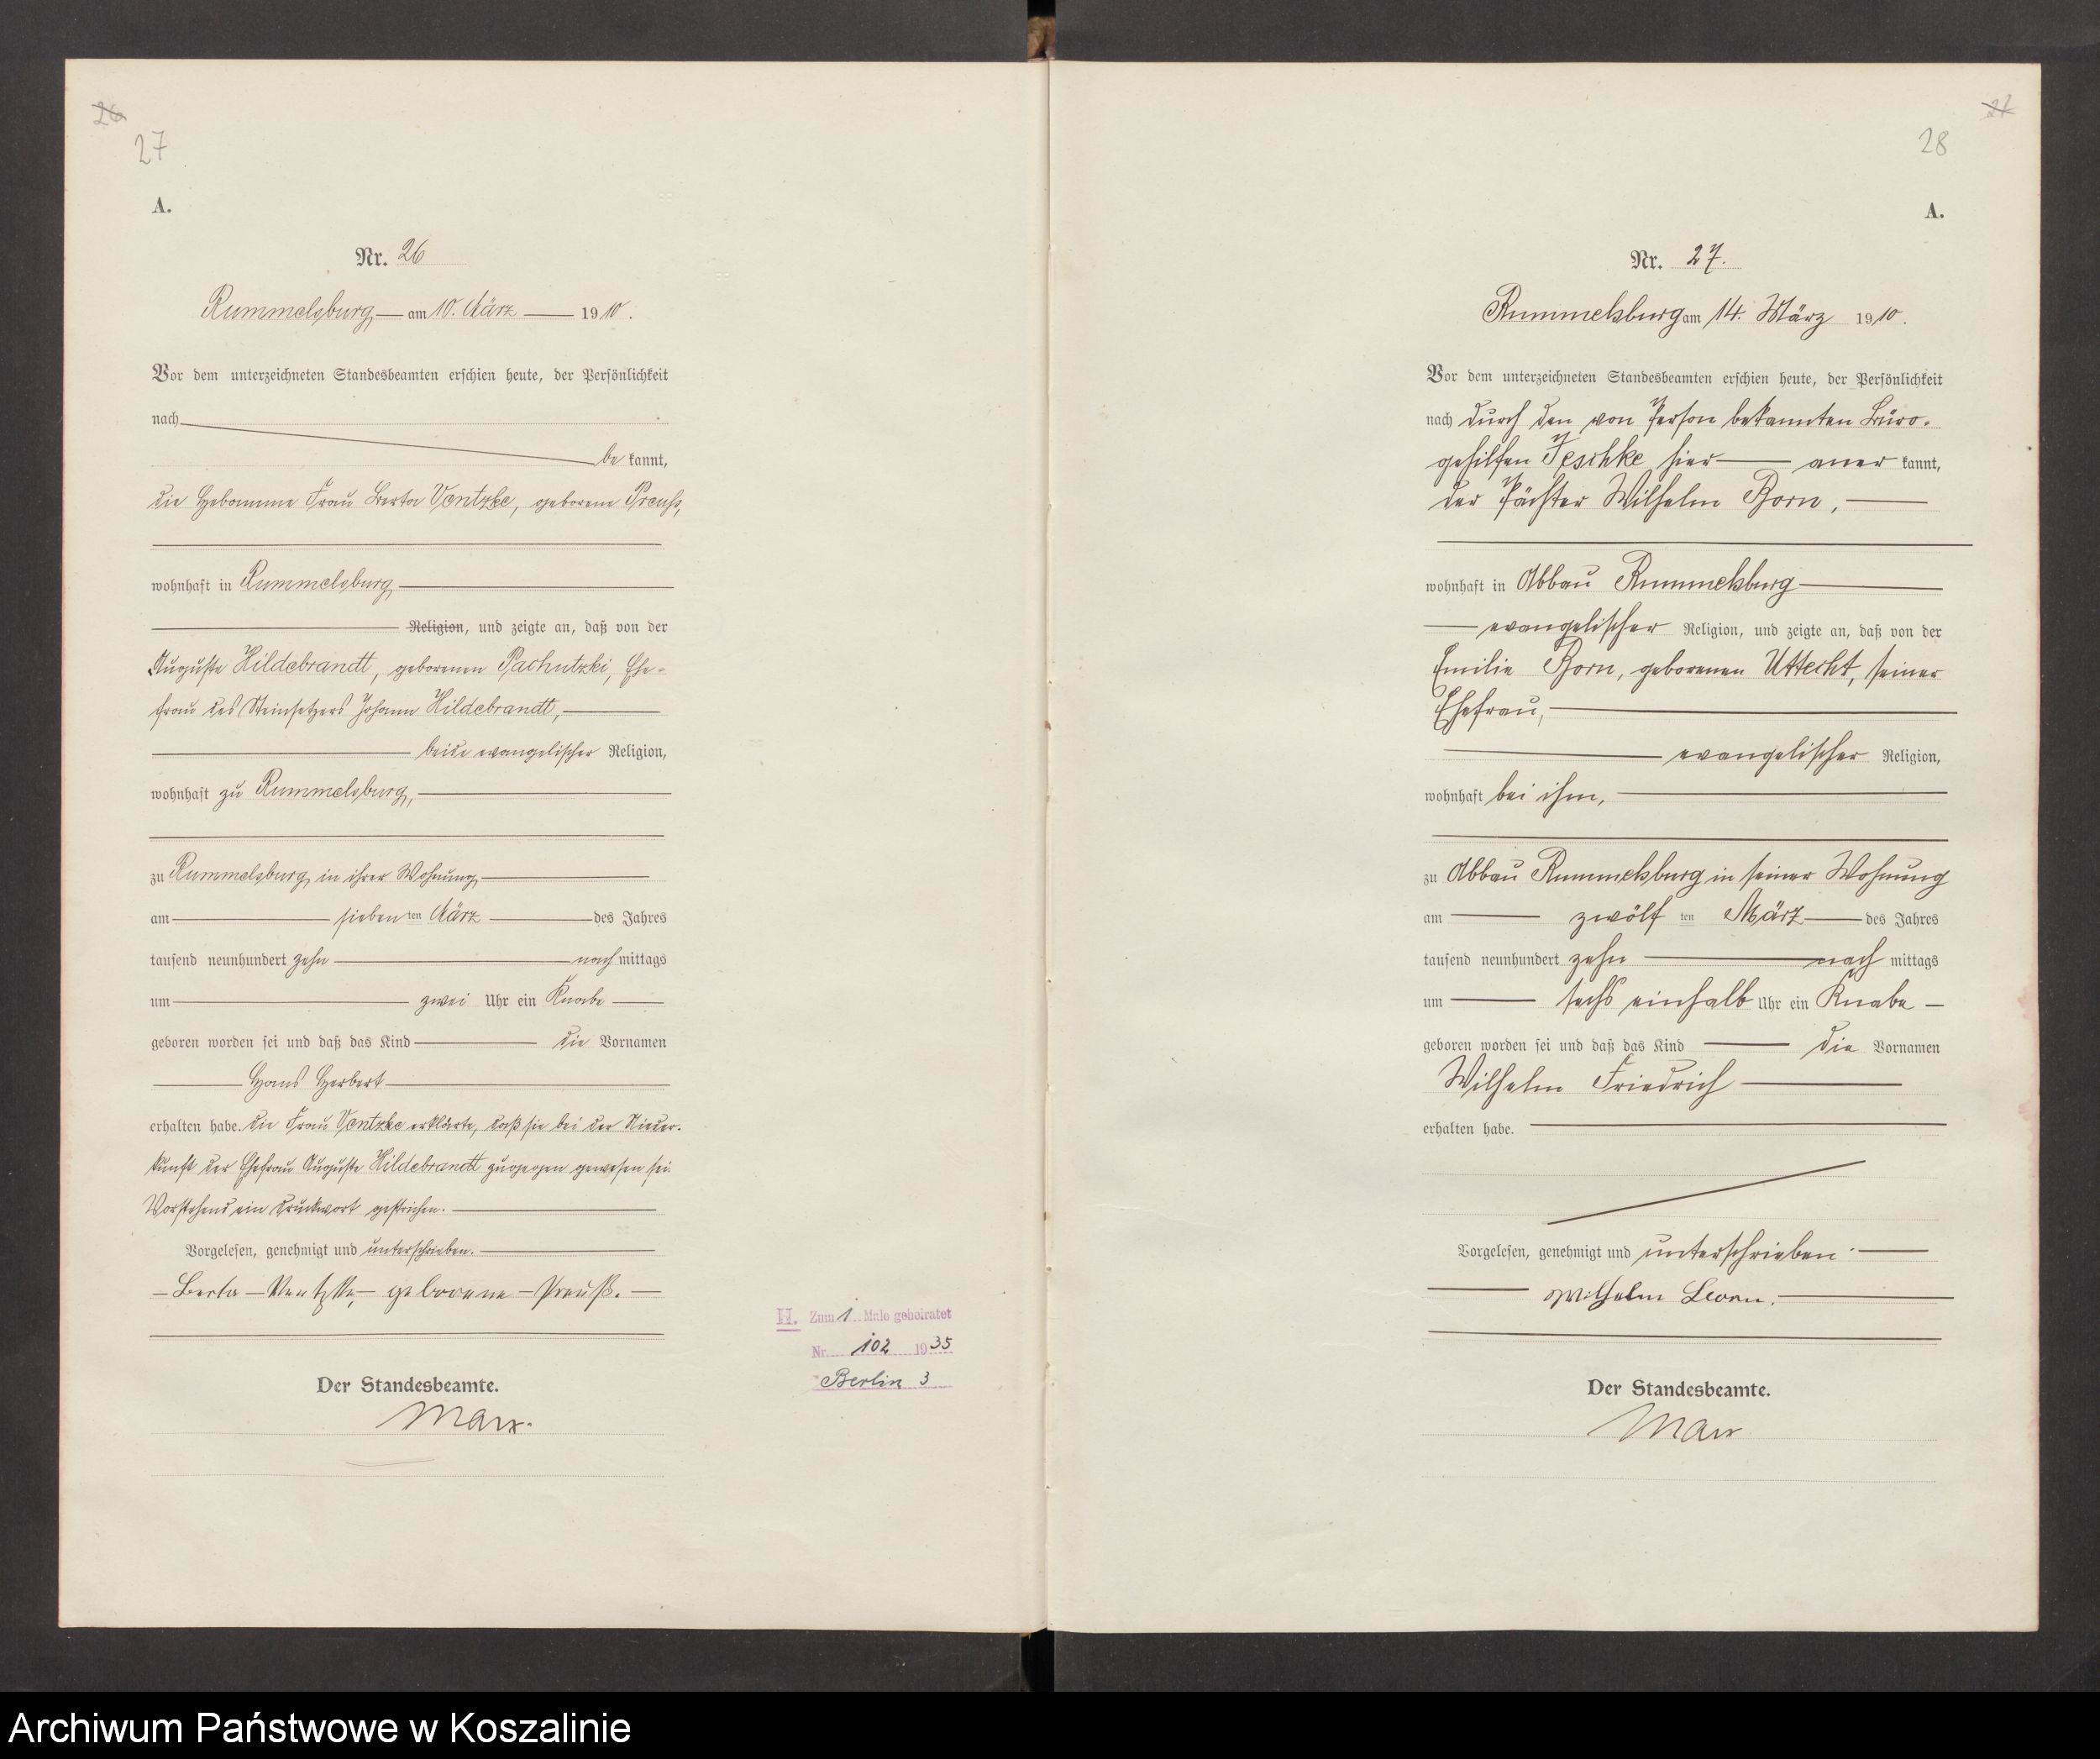 26
27
A.
Nr. 26
Rummelsburg am 10. März 1910.
Vor dem unterzeichneten Standesbeamten erschien heute, der Persönlichkeit
nach
be kannt,
die Hebamme Frau Berta Ventzke, geborene Preuss,
wohnhaft in Rummelsburg
Religion, und zeigte an, daß von der
Auguste Hildebrandt, geborenen Pachutzki, Ehe-
frau des Steinsetzers Johann Hildebrandt,
beide evangelischer Religion,
wohnhaft zu Rummelsburg,
zu Rummelsburg in ihrer Wohnung
am sieben ten März des Jahres
tausend neunhundert zehn nach mittags
um zwei Uhr ein Knabe
geboren worden sei und daß das Kind die Vornamen
Hans Herbert
erhalten habe. Die Frau Ventzke erklärte, daß sie bei der Nieder-
kunft der Ehefrau Auguste Hildebrandt zugegen gewesen sei.
Vorstehend ein Druckwort gestrichen.
Vorgelesen, genehmigt und unterschrieben.
Berta Ventzke, geborene Preuß.
Der Standesbeamte.
Marx.
H. Zum 1 Male geheiratet
Nr. 102 1935
Berlin 3
28
A.
Nr. 27.
Rummelsburg am 14. März 1910.
Vor dem unterzeichneten Standesbeamten erschien heute, der Persönlichkeit
nach durch den von Person bekannten Büro-
gehilfen Jeschke hier aner kannt,
der Pächter Wilhelm Born,
wohnhaft in Abbau Rummelsburg
evangelischer Religion, und zeigte an, daß von der
Emilie Born, geborenen Uttecht, seiner
Ehefrau,
evangelischer Religion,
wohnhaft bei ihm,
zu Abbau Rummelsburg in seiner Wohnung
am zwölf ten März des Jahres
tausend neunhundert zehn nach mittags
um sechs einhalb Uhr ein Knabe
geboren worden sei und daß das Kind die Vornamen
Wilhelm Friedrich
erhalten habe.
Vorgelesen, genehmigt und unterschrieben.
Wilhelm Born.
Der Standesbeamte.
Marx
Archiwum Państwowe w Koszalinie